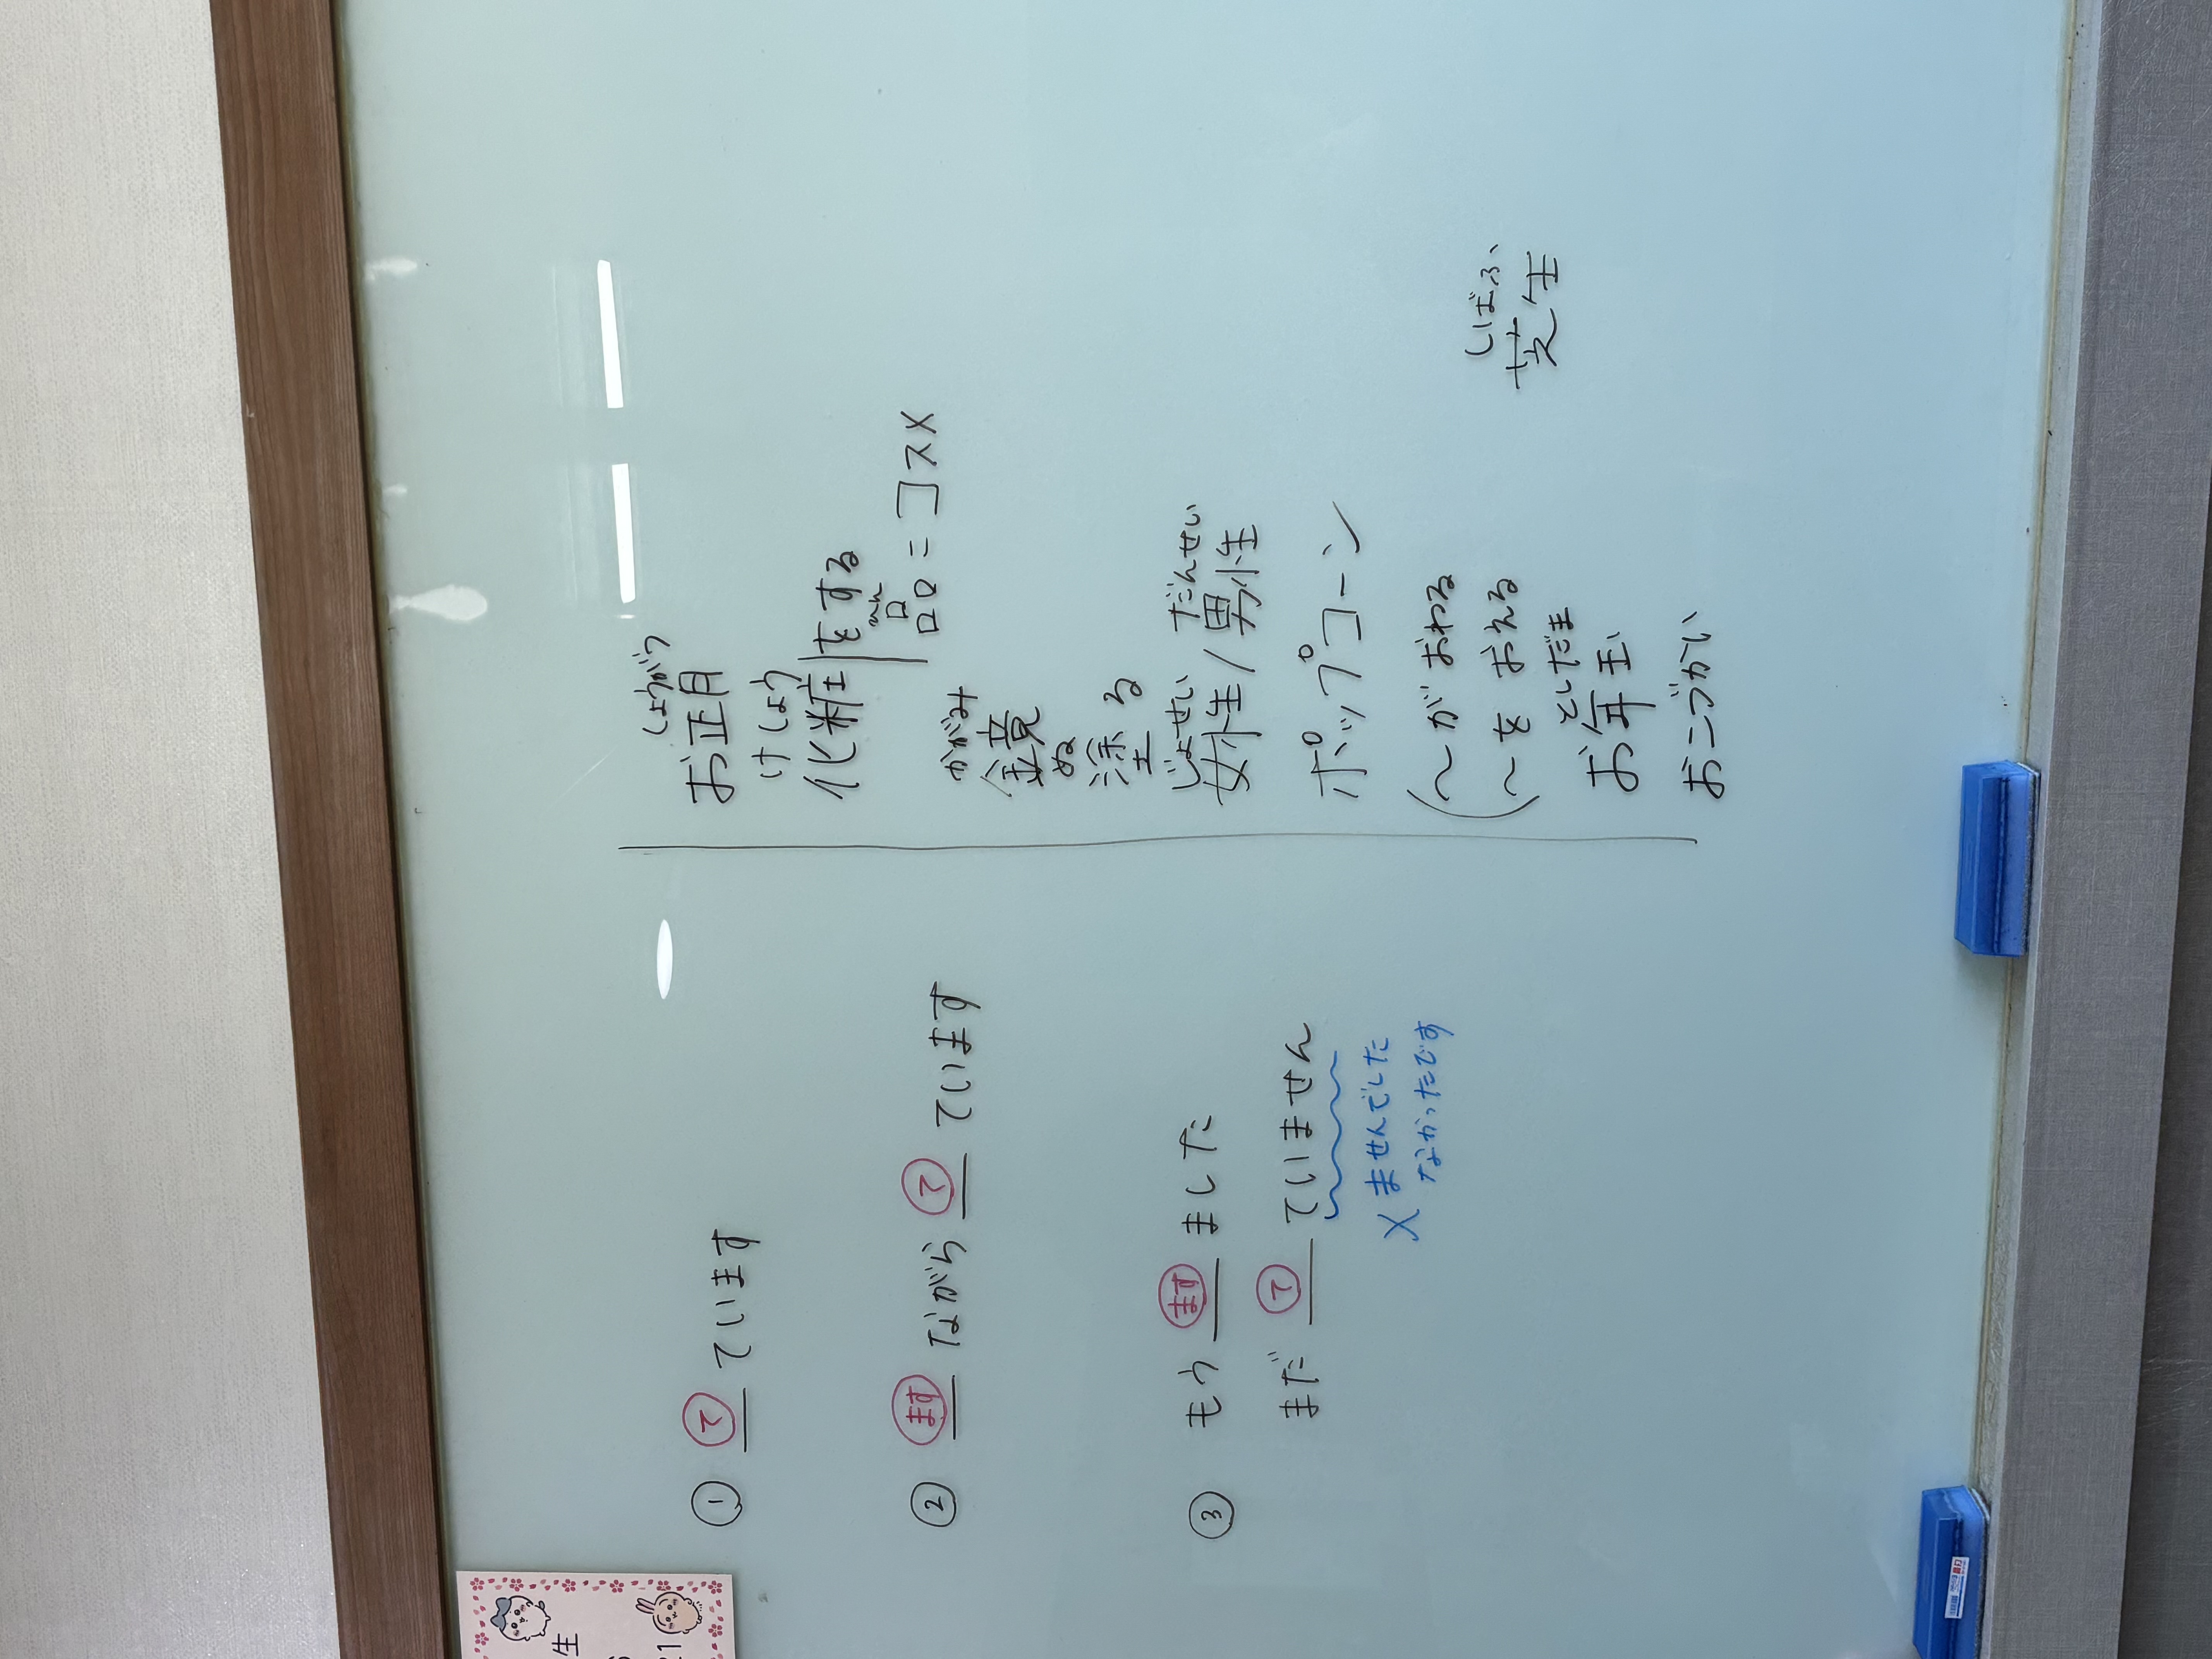 ① て ています
② ます ながら て ています
③ もう ます ました
まだ て ていません
× ませんでした
なかったです
しょうがつ
お正月
けしょう
化粧をする
ひん
品=コスメ
かがみ
鏡
ぬ
塗る
じょせい だんせい
女性/男性
ポップコーン
〜が おわる
〜を おえる
としだま
お年玉
おこづかい
しばふ
芝生
生